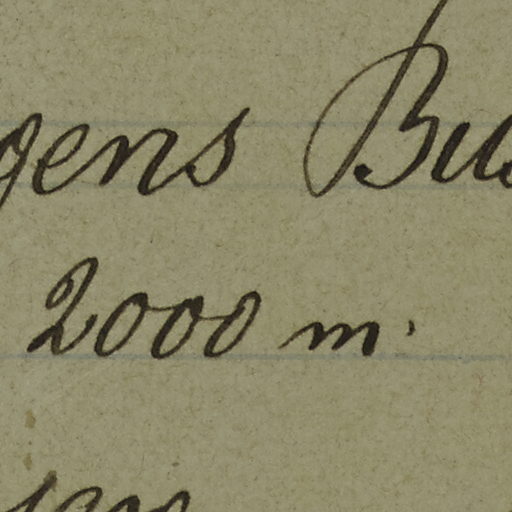 gens Bus
2000 m.